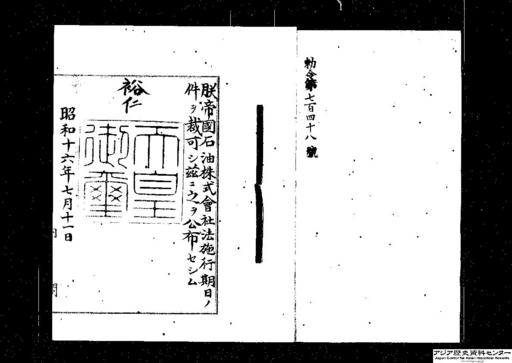 勅令第七百四十八號
朕帝國石油株式會社法施行期日ノ
件ヲ裁可シ茲ニ之ヲ公布セシム
裕仁
天皇御璽
昭和十六年七月十一日
アジア歴史資料センター
Japan Center for Asian Historical Records